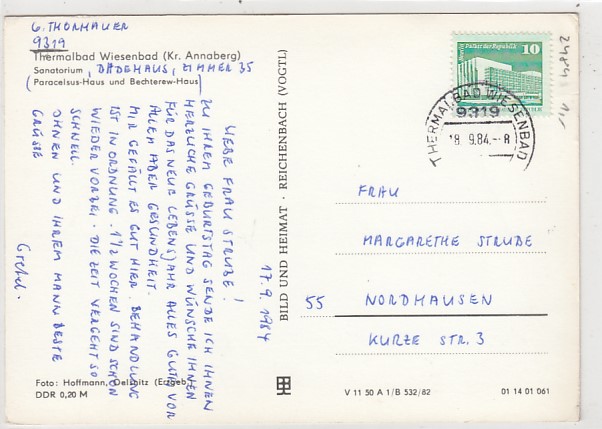 G. THORHAUER
9319
Thermalbad Wiesenbad (Kr. Annaberg)
Sanatorium, BÄDEHAUS, ZIMMER 35
(Paracelsus-Haus und Bechterew-Haus)
17.9.1984
LIEBE FRAU STRUBE!
ZU IHREM GEBURTSTAG SENDE ICH IHNEN
HERZLICHE GRÜSSE UND WÜNSCHE IHNEN
FÜR DAS NEUE LEBENSJAHR ALLES GUTE VOR
ALLEM ABER GESUNDHEIT.
MIR GEFÄLLT ES GUT HIER. BEHANDLUNG
IST IN ORDNUNG. 1 1/2 WOCHEN SIND SCHON
WIEDER VORBEI. DIE ZEIT VERGEHT SO
SCHNELL.
IHNEN UND IHREM MANN BESTE
GRÜSSE
Gretel.
Foto: Hoffmann, Oelsnitz (Erzgeb.)
DDR 0,20 M
BILD UND HEIMAT · REICHENBACH (VOGTL)
Palast der Republik
10
THERMALBAD WIESENBAD
9319
18.9.84.-8
FRAU
MARGARETHE STRUBE
55 NORDHAUSEN
KURZE STR. 3
V 11 50 A 1/B 532/82
01 14 01 061